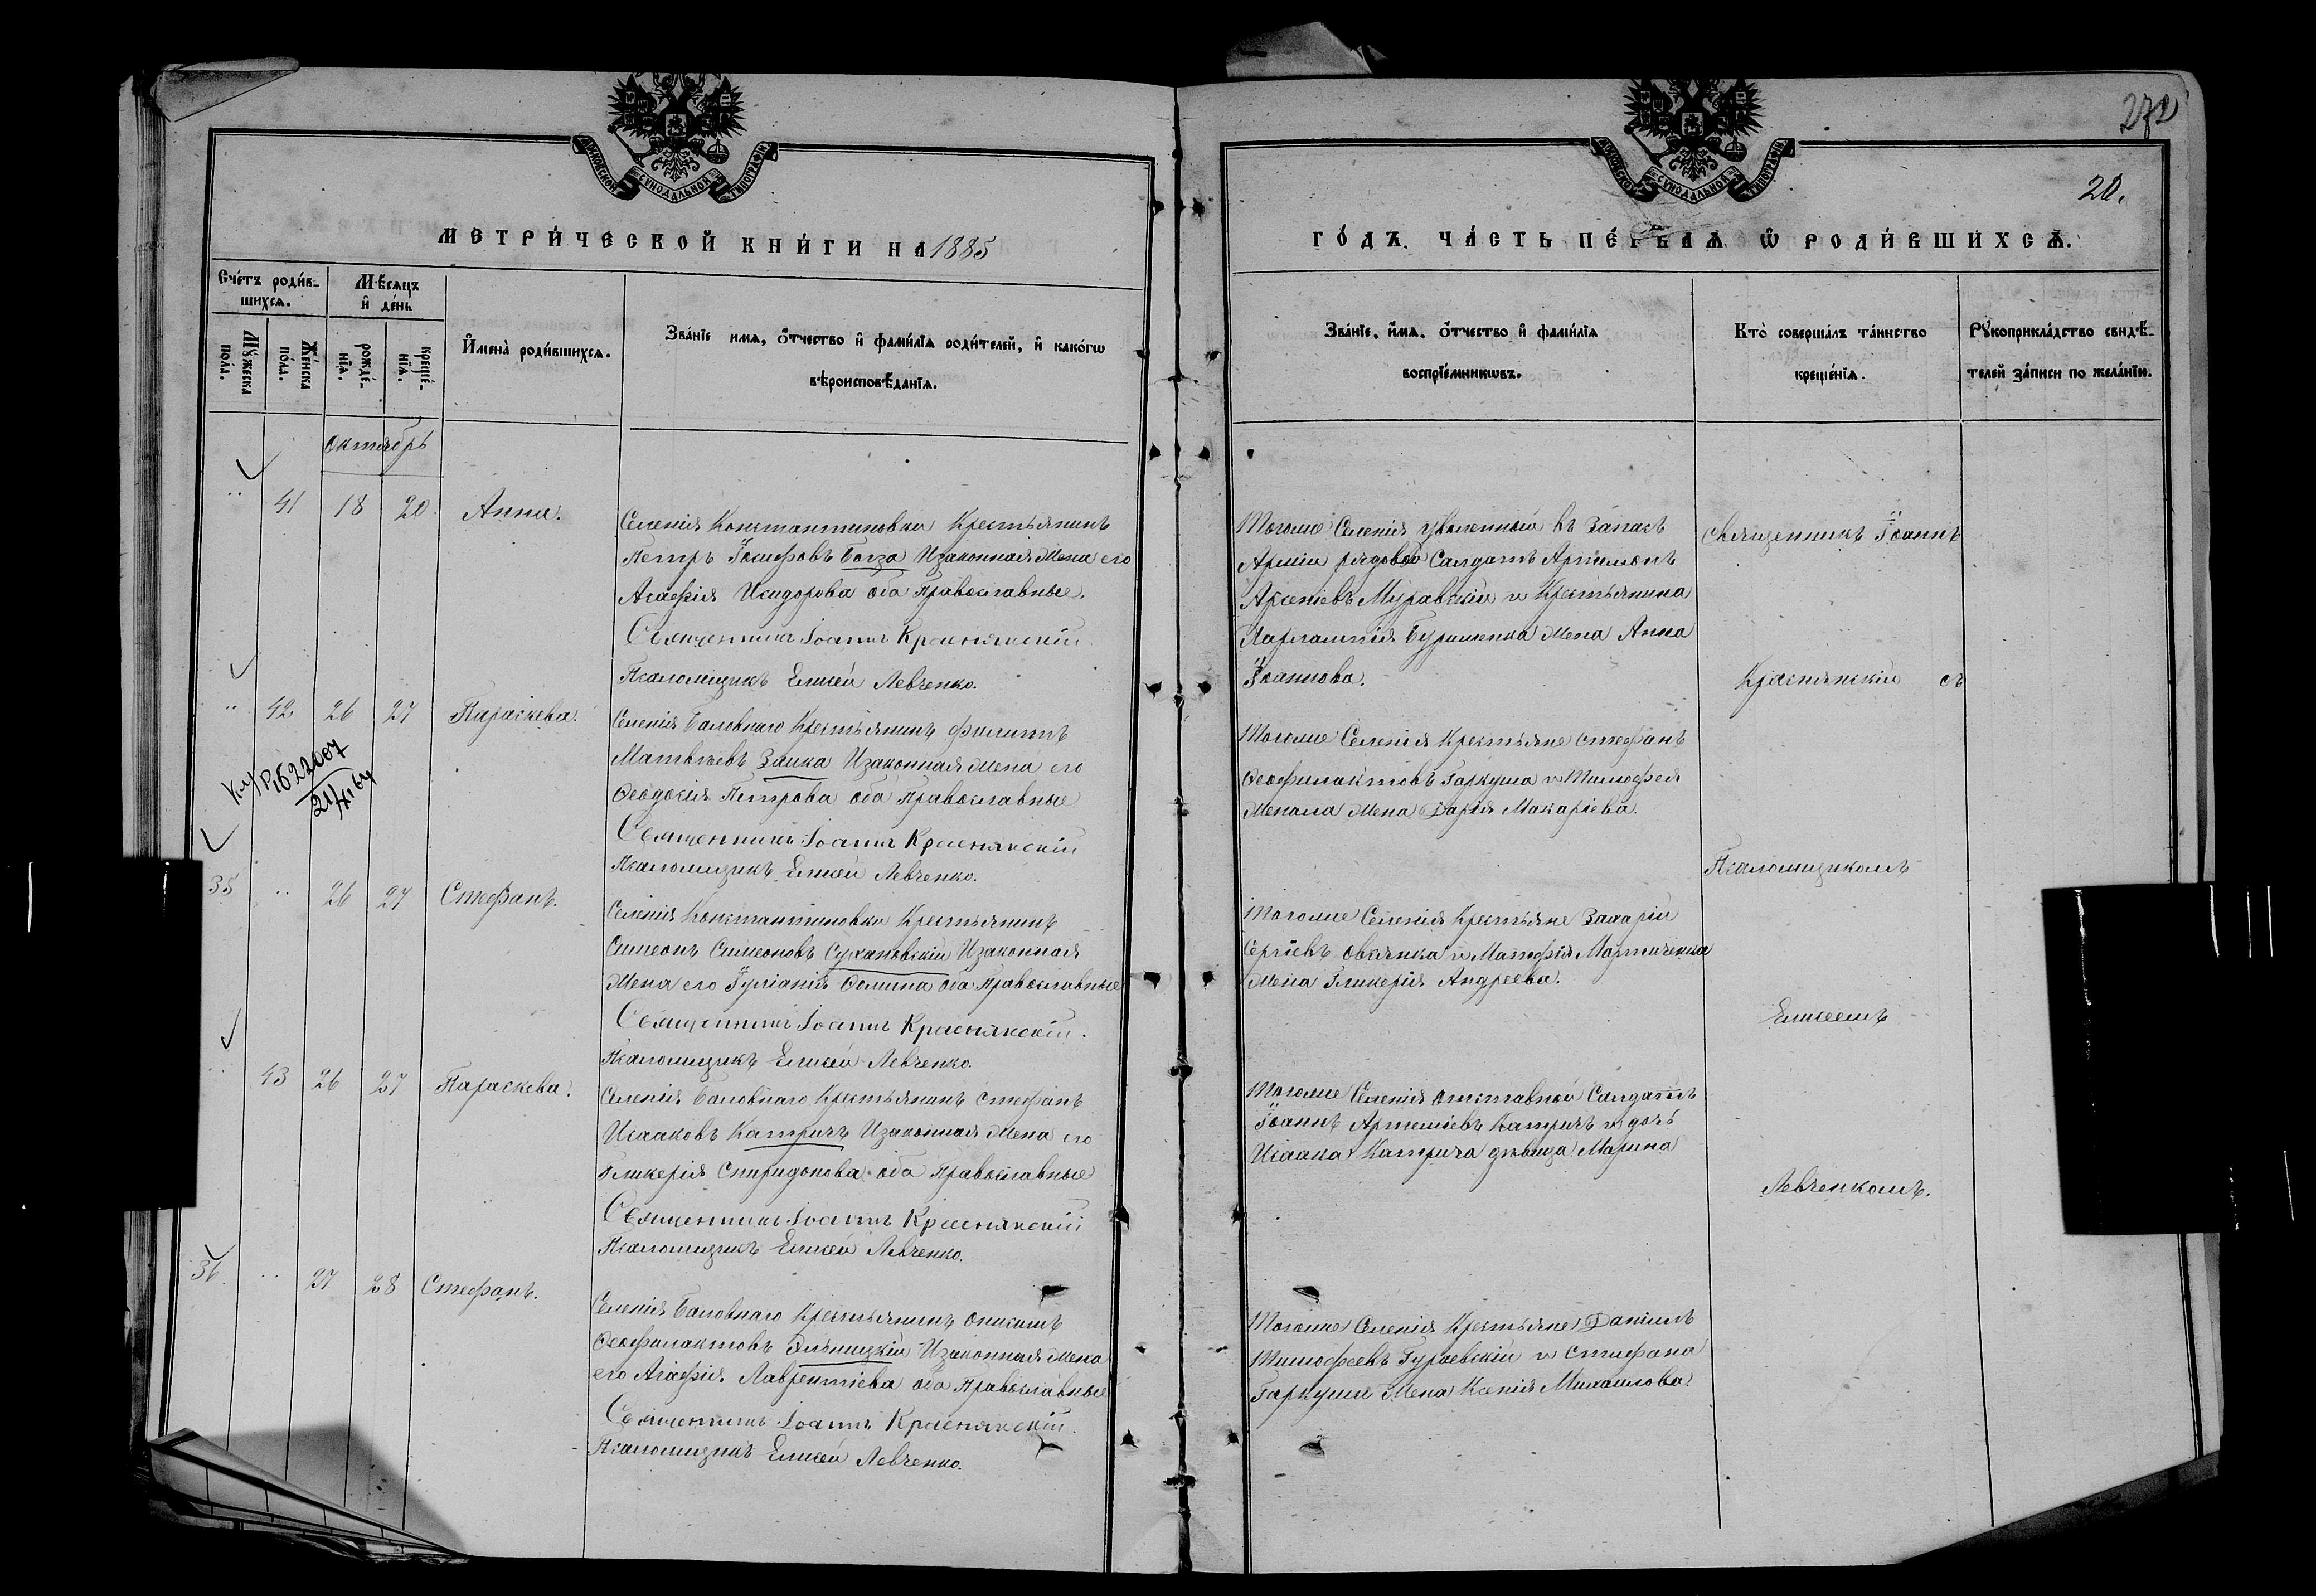 272
20.
МОСКОВСКОЙ СѴНОДАЛЬНОЙ ТИПОГРАФІИ
МОСКОВСКОЙ СѴНОДАЛЬНОЙ ТИПОГРАФІИ
МЕТРИ́ЧЕСКОЙ КНИ́ГИ НА 1885
ГО́ДЪ. ЧА́СТЬ ПЕ́РВАѦ Ѡ РОДИ́ВШИХСѦ.
Сче́тъ роди́в-
шихсѧ.
Мѣ́сѧцъ
и҆ де́нь
Мꙋ́жеска
по́ла.
Же́нска
по́ла.
рожде́-
нїѧ.
креще́-
нїѧ.
И҆мена̀ роди́вшихсѧ.
Зва́нїе имѧ, ѻ҆́тчество и҆ фами́лїѧ роди́телей, и҆ како́гѡ
вѣроисповѣ́данїѧ.
Зва́нїе, и҆́мѧ, ѻ҆́тчество и҆ фами́лїѧ
воспрїе́мникѡвъ.
Кто̀ соверша́лъ та́инство
креще́нїѧ.
Рꙋкоприкла́дство свидѣ́-
телей за́писи по жела́нїю.
Октябрь
41 18 20. Анна.
Селенія Константиновки Крестьянинъ
Петръ Іосифовъ Богза Изаконная Жена его
Агафія Исидорова оба Православные.
Священникъ Іоаннъ Краснянскій
Псаломщикъ Елисей Левченко.
Тогоже Селенія уволенный въ Запасъ
Арміи рядовой Салдатъ Артемонъ
Арсеніевъ Муравскій и Крестьянина
Харлампія Бурименка Жена Анна
Іоаннова.
Священникъ Іоаннъ
Краснянскій съ
42 26 27 Параскева.
Селенія Баловнаго Крестьянинъ Филиппъ
Матвѣевъ Заика Изаконная Жена его
Ѳеодосія Петрова оба Православные
Священникъ Іоаннъ Краснянскій
Псаломщикъ Елисей Левченко.
Тогоже Селенія Крестьяне Стефанъ
Ѳеофилактовъ Гаркуша и Тимофея
Жена Дарія Макаріева.
Псаломщикомъ
35 26 27 Стефанъ.
Селенія Константиновки Крестьянинъ
Симеонъ Симеоновъ Сухановскій Изаконная
Жена его Іуліанія Ѳомина оба Православные
Священникъ Іоаннъ Краснянскій.
Псаломщикъ Елисей Левченко.
Тогоже Селенія Крестьяне Захарій
Сергіевъ Овсянка и Матофія Мартиченка
Жена Гликерія Андреева.
Елисеемъ
43 26 27 Параскева.
Селенія Баловнаго Крестьянинъ Стефанъ
Исааковъ Катричъ Изаконная Жена его
Гликерія Спиридонова оба Православные
Священникъ Іоаннъ Краснянскій
Псаломщикъ Елисей Левченко.
Тогоже Селенія отставной Салдатъ
Іоаннъ Артеміевъ Катричъ и дочь
Исаака Катрича дѣвица Марина
Левченкомъ.
36 27 28 Стефанъ.
Селенія Баловнаго Крестьянинъ Онисимъ
Ѳеофилактовъ Изаконная Жена
его Агафія Лаврентіева оба Православные
Священникъ Іоаннъ Краснянскій.
Псаломщикъ Елисей Левченко.
Тогоже Селенія Крестьяне Даніилъ
Тимофеевъ Гураевскій и Стефана
Гаркуши Жена Ксенія Михаилова.